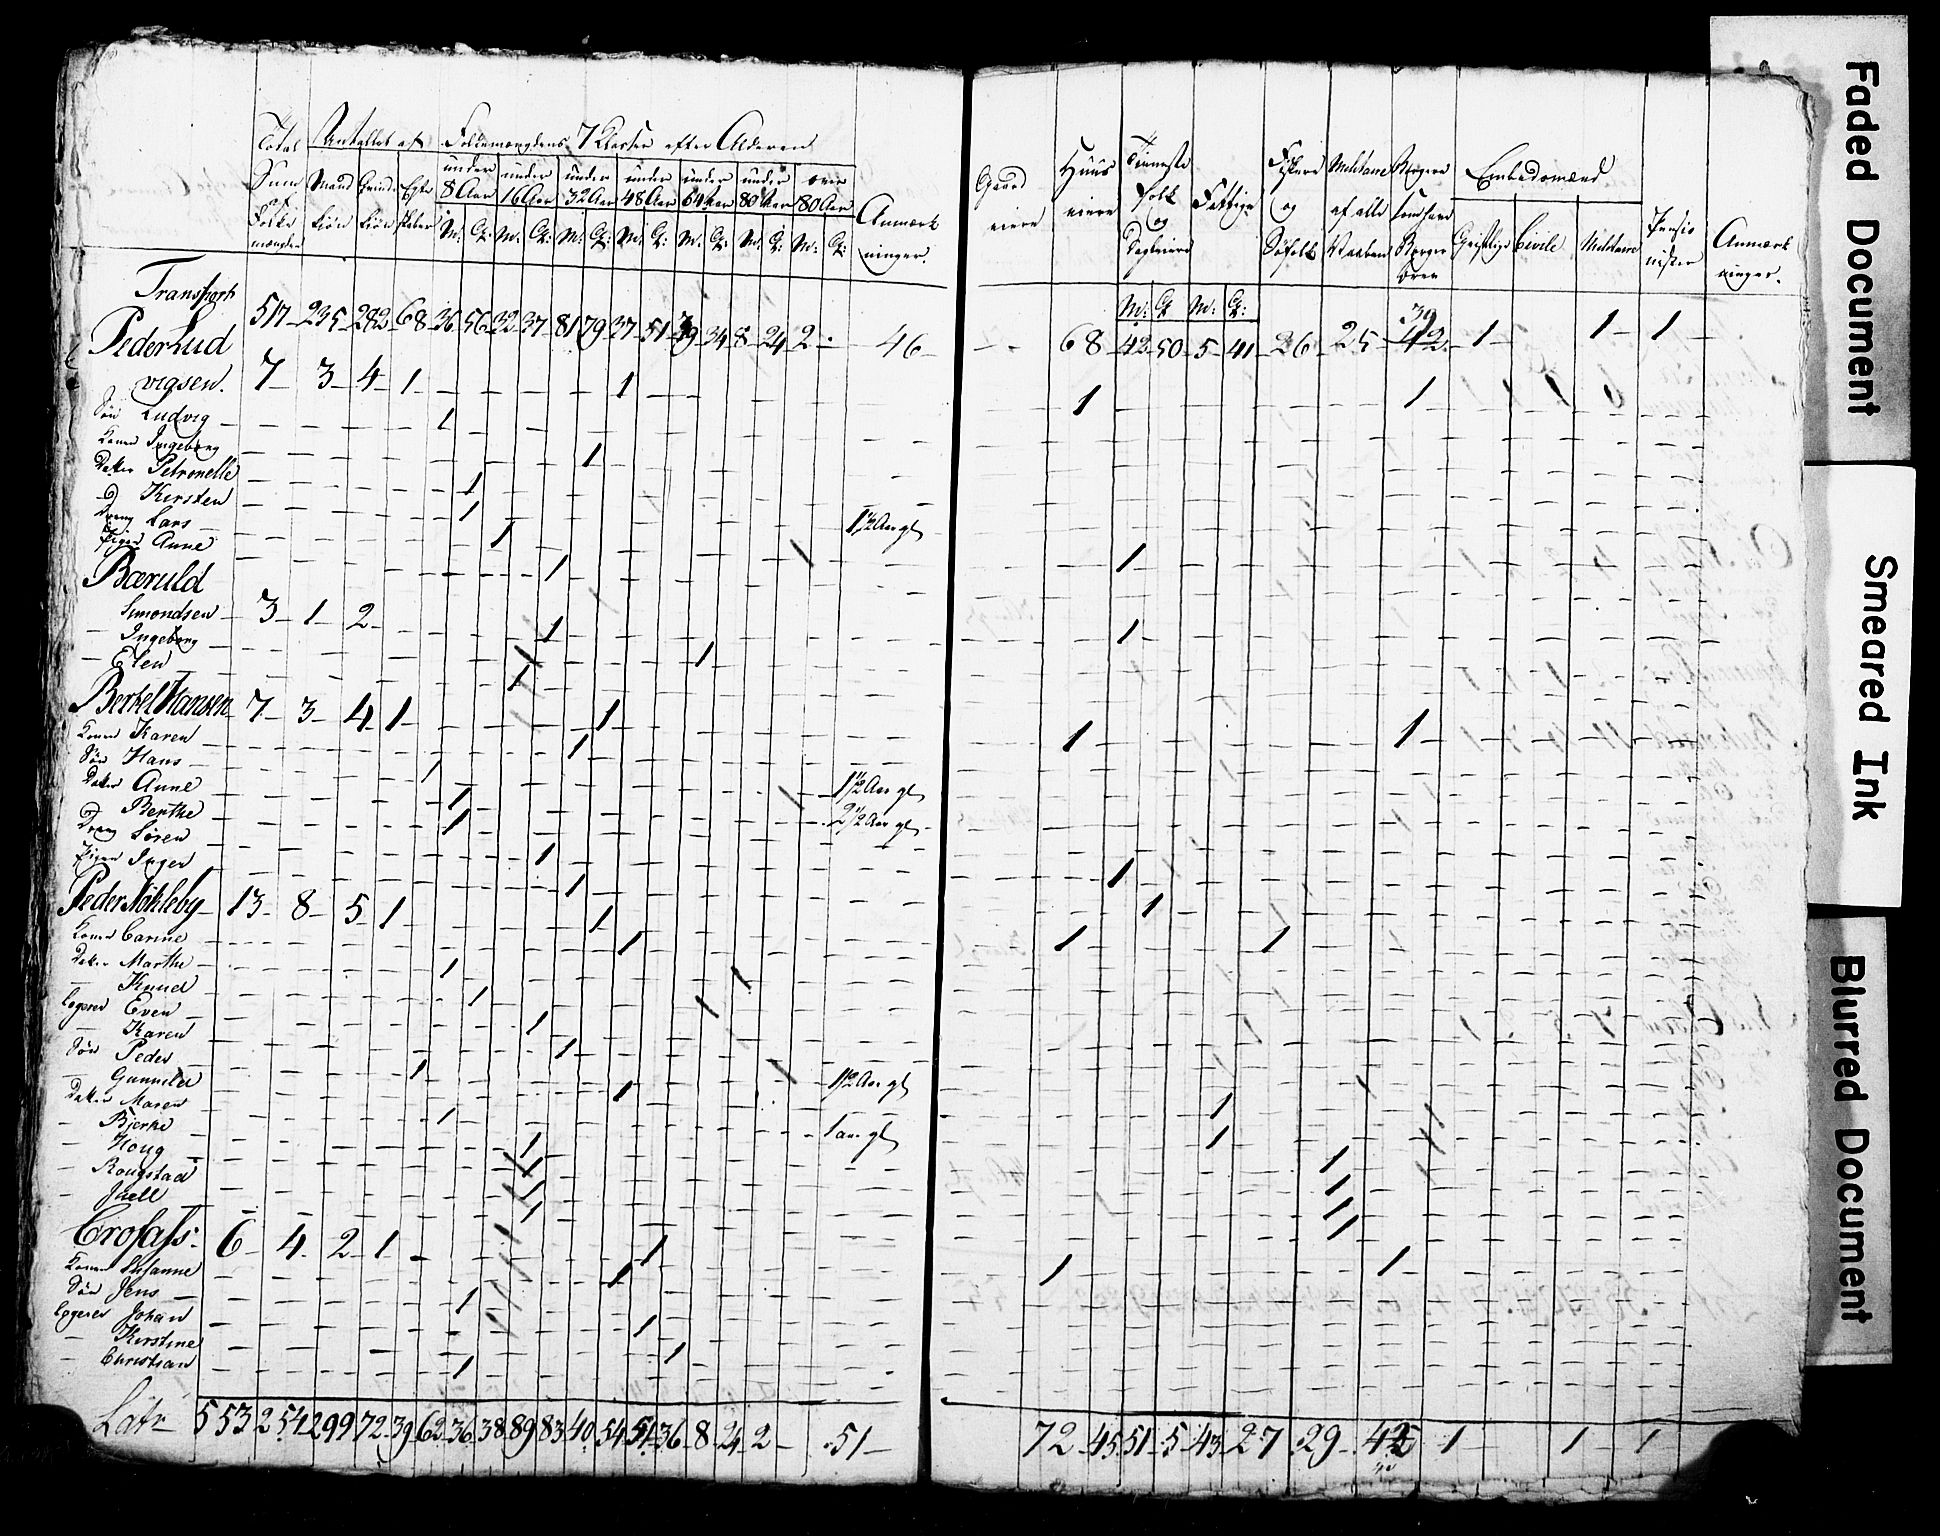 Total Antallet af Folkemængdens 7 Klasser efter Alderen
Sum Mand Qvinde Egte under under under under under under over
af 8 Aar 16 Aar 32 Aar 48 Aar 64 Aar 80 Aar 80 Aar
Folke kiøn kiøn skaber M: Q: M: Q: M: Q: M: Q: M: Q: M: Q: M: Q: Anmærk
mængden ninger.
Transport 517 235 282 68 36 56 32 37 81 79 37 51 39 34 8 24 2 - 46
Peder Lud
vigsen. 7 3 4 1 - 1
Søn Ludvig 1
Konen Ingeborg 1
Datter Petronelle 1
D Kirsten 1 1½ Aar gl
Dreng Lars 1
Pigen Anne 1
Bæruld
Simondsen 3 1 2 1
Ingeborg 1
Elen 1
Bertel Hansen 7 3 4 1 1
Konen Karen 1
Søn Hans 1
Datter Anne 1 1½ Aar gl
D Berthe 1 2½ Aar gl
Dreng Søren 1
Pigen Inger 1
Peder Nökleby 13 8 5 1 1
Konen Carine 1
Datter Marthe 1
Knud 1
Logerer Even 1
Karen 1
Søn Peder 1 1½ Aar gl
Gunnild 1
Datter Maren 1 1 aar gl
Bjerke 1
Houg 1
Rougstad 1
Juell 1
Crosass: 6 4 2 1 1
Konen Susanne 1
Søn Jens 1
Logerer Johan 1
Kirstine 1
Christian 1
Latr 553 254 299 72 39 62 36 38 89 83 40 54 51 36 8 24 2 - 51
Gaard Huus Tieneste Fattige Fiskere Militaire Borgere Embedsmænd Pensio Anmærk
eiere eiere folk og af alle som have nister ninger.
og Søfolk Vaaben Borger Geistlige Civile Militaire
Dagleiere brev
M: Q: M: Q:
39
68 42 50 5 41 26 25 42 1 1 1
1 1
1
1
1 1
1
1
1 1
1
1
1
1
1
1
1 1
72 45 51 5 43 27 29 1 1 1